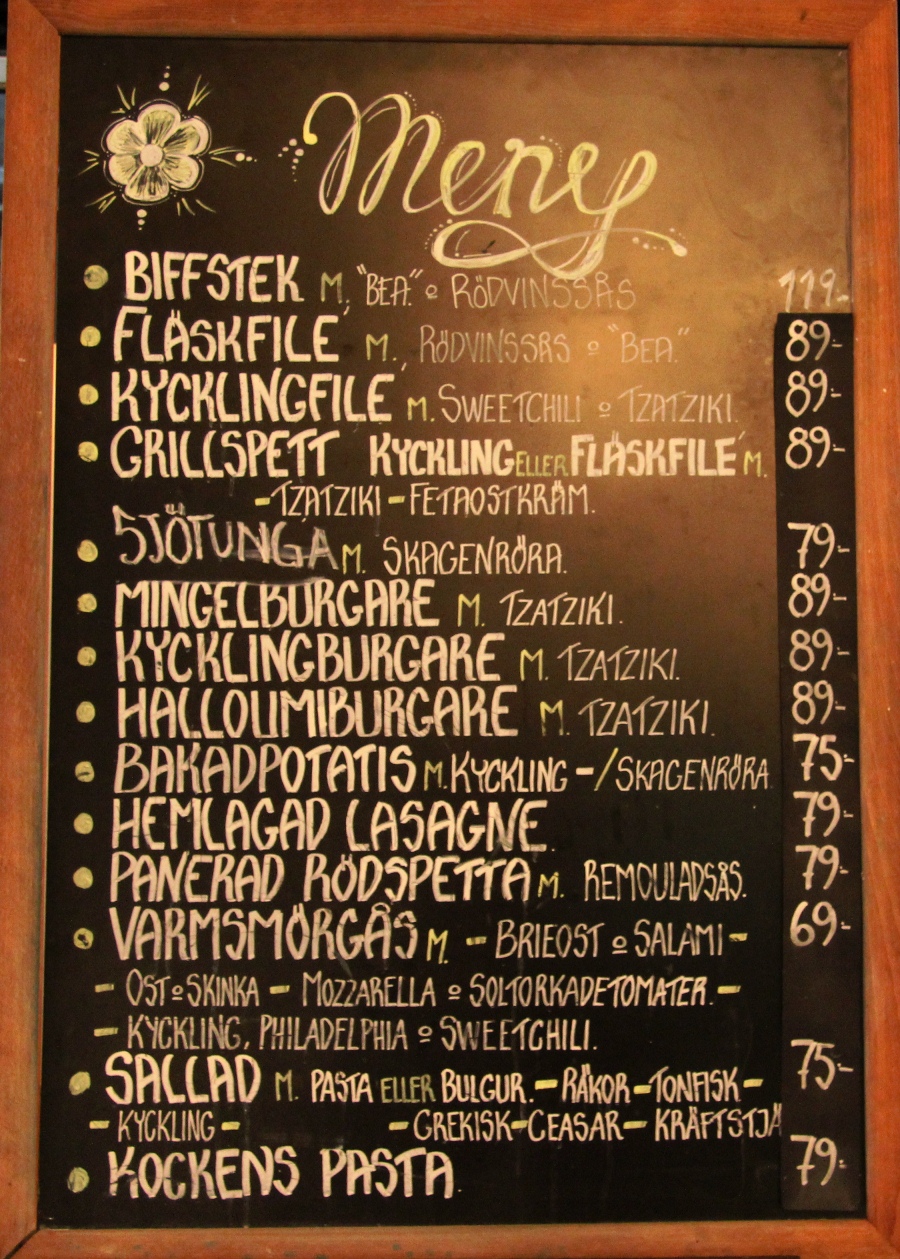 Meny
BIFFSTEK M. "BEA." o RÖDVINSSÅS 119:-
FLÄSKFILÉ M. RÖDVINSSÅS o "BEA" 89:-
KYCKLINGFILÉ M. SWEETCHILI o TZATZIKI. 89:-
GRILLSPETT KYCKLING ELLER FLÄSKFILÉ M. 89:-
-TZATZIKI -FETAOSTKRÄM.
SJÖTUNGA M. SKAGENRÖRA. 79:-
MINGELBURGARE M. TZATZIKI. 89:-
KYCKLINGBURGARE M. TZATZIKI. 89:-
HALLOUMIBURGARE M. TZATZIKI. 89:-
BAKADPOTATIS M. KYCKLING -/SKAGENRÖRA 75:-
HEMLAGAD LASAGNE. 79:-
PANERAD RÖDSPETTA M. REMOULADSÅS. 79:-
VARMSMÖRGÅS M. - BRIEOST o SALAMI - 69:-
- OST o SKINKA - MOZZARELLA o SOLTORKADETOMATER. -
- KYCKLING, PHILADELPHIA o SWEETCHILI.
SALLAD M. PASTA ELLER BULGUR. - RÄKOR - TONFISK - 75:-
- KYCKLING - - GREKISK - CEASAR - KRÄFTSTJÄ
KOCKENS PASTA 79:-